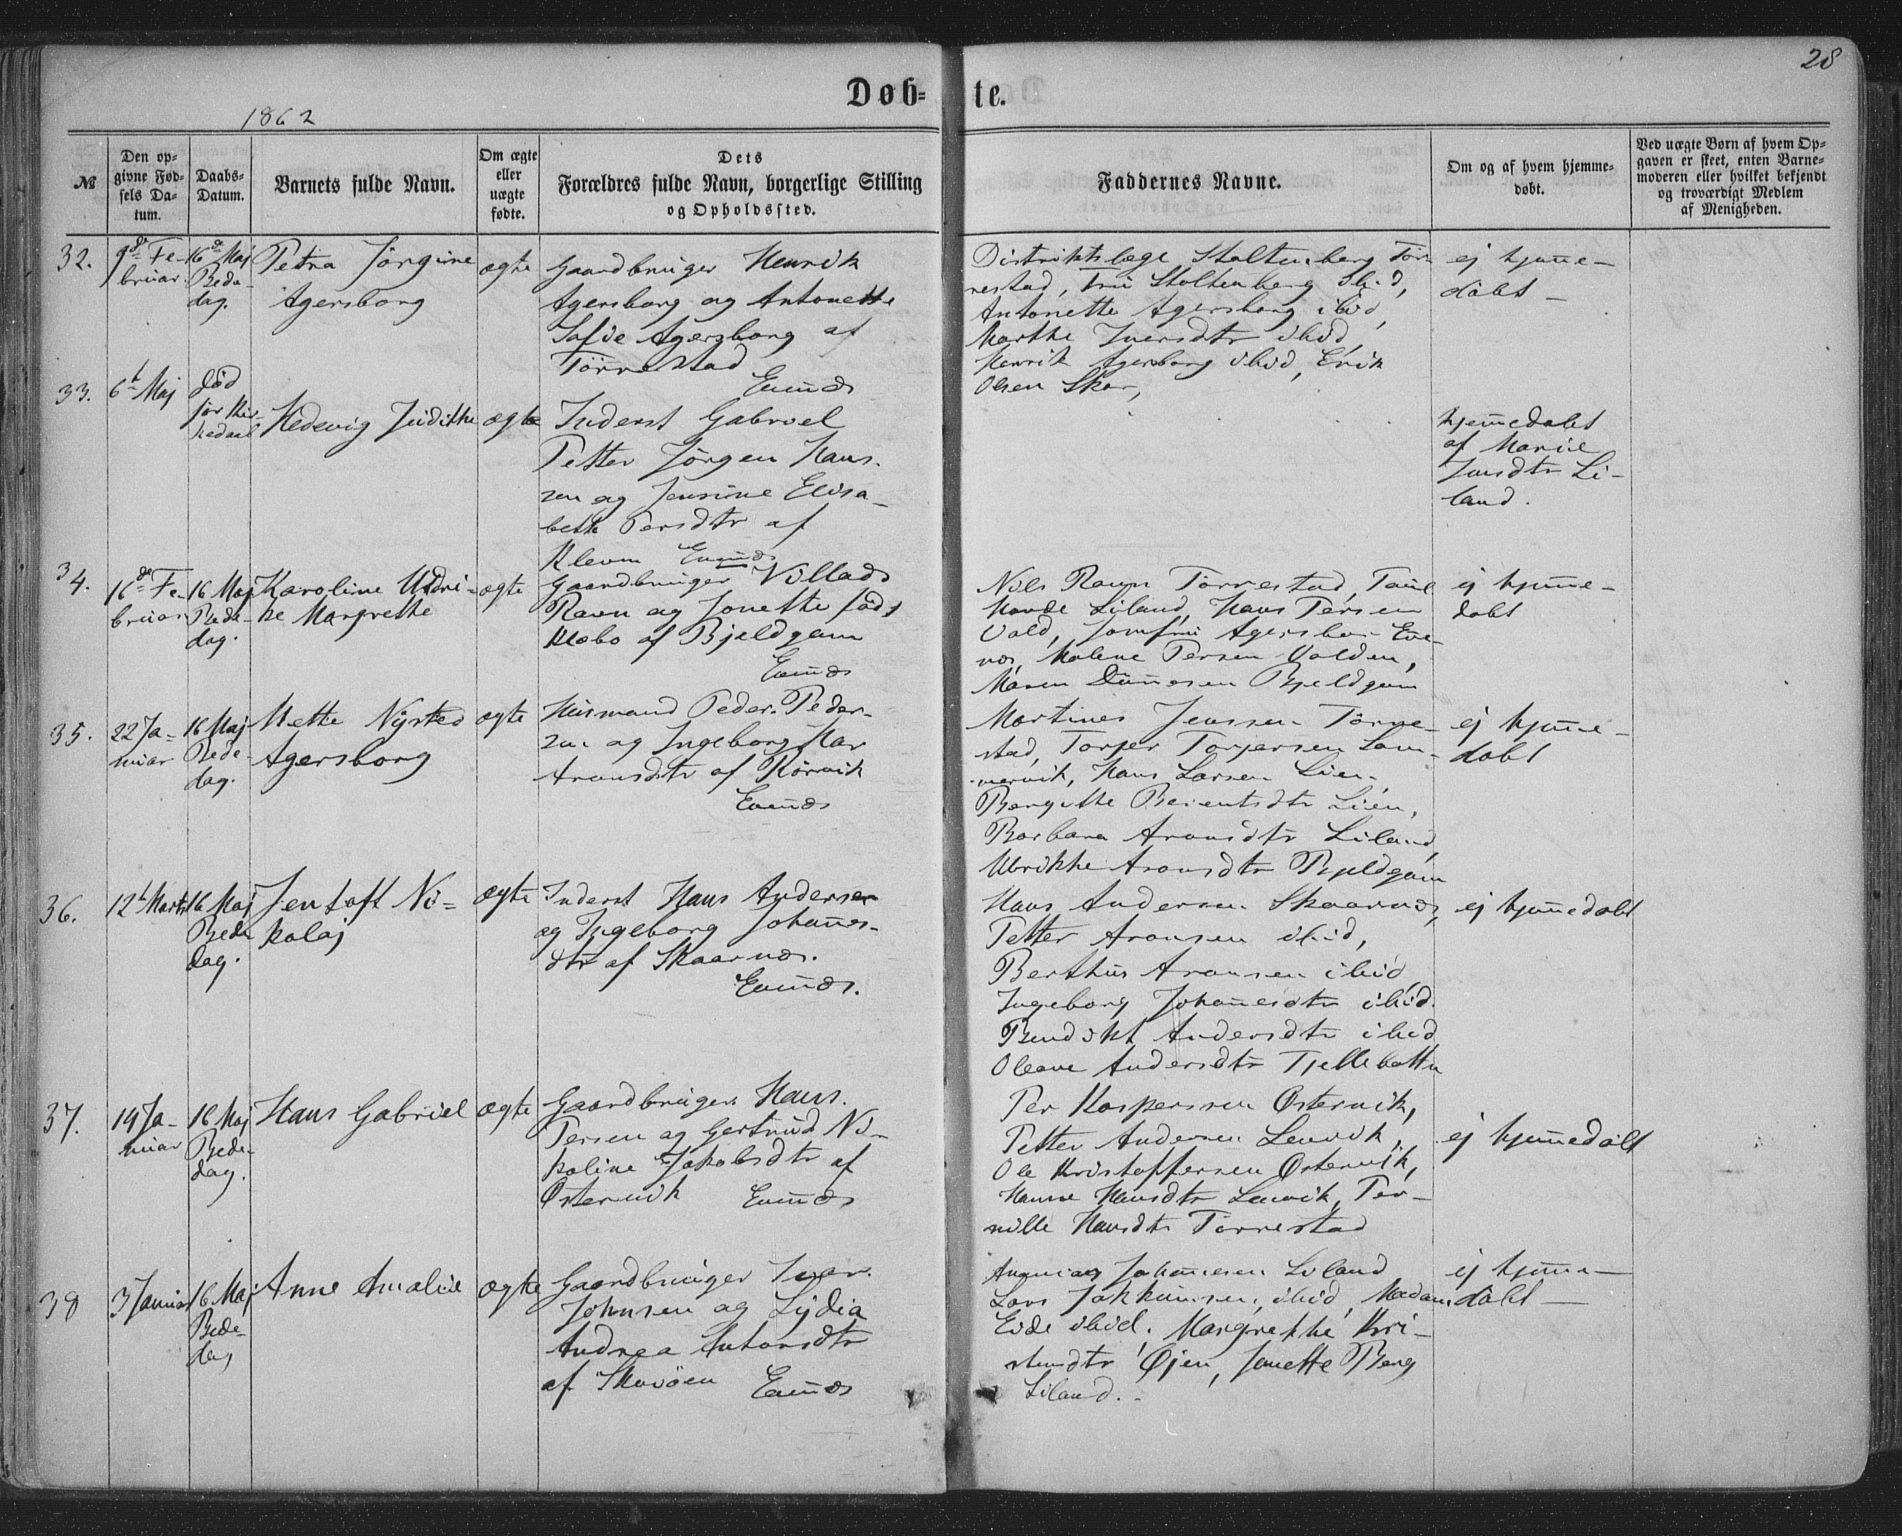 28
Døb-
te.
1862
№
Den op-
givne Fød-
sels Da-
tum.
Daabs-
Datum.
Barnets fulde Navn.
Om ægte
eller
uægte
fødte.
Dets
Forældres fulde Navn, borgerlige Stilling
og Opholdssted.
Faddernes Navne.
Om og af hvem hjemme-
døbt.
Ved uægte Børn af hvem Op-
gaven er skeet, enten Barne-
moderen eller hvilket bekjendt
og troværdigt Medlem
af Menigheden.
32.
9de Fe-
bruar.
16de Maj
Bede-
dag.
Petra Jørgine
Agersborg
ægte
Gaardbruger Henrik
Agersborg og Antonette
Sofie Agersborg af
Tørrestad
Evenæs
Distriktslæge Stoltenberg Tør-
restad, Fru Stoltenberg ibid,
Antonette Agersborg ibid,
Marthe Iversdtr ibid,
Henrik Agersborg ibid, Erik
Olsen Skar,
ej hjemme-
døbt -
33.
6t Maj
død
før Kir-
kedaab
Hedevig Judithe
ægte
Inderst Gabriel
Petter Jørgen Han-
sen og Jensine Elisa-
beth Persdtr af
Kleven Evenæs
hjemmedøbt
af Marie
Jensdtr Li-
land.
34.
16de Fe-
bruar
16 Maj
Bede-
dag.
Karoline Uldri-
ke Margrethe
ægte
Gaardbruger Villads
Ravn og Jonette født
Klæbo af Bjeldgam
Evenæs
Nils Ravn Tørrestad,
Liland, Hans Persen
Vold, Jomfru Agersbor- Eve-
næs, Malene Persen Volden,
Maren Bjeldgam
ej hjemme-
døbt
35.
22 Ja-
nuar
16 Maj
Bede-
dag.
Mette Nysted
Agersborg
ægte
Husmand Peder Peder-
sen og Ingeborg Mar
Aronsdtr af Rørvik
Evenæs
Martines Jenssen Tørre-
stad, Torger Torgersen Lom-
mervik, Hans Larsen Lien,
Bergitte Berentsdtr Lien,
Barbara Aronsdtr Liland,
Ulrikke Aronsdtr Bjeldgam
ej hjemme-
døbt
36.
12t Marts
16 Maj
Bede
dag.
Jentoft Ni-
kolaj
ægte
Inderst Hans Andersen
og Ingeborg Johannes-
dtr af Skaarnæs.
Evenæs.
Hans Andersen Skaarnæs,
Petter Aronsen ibid,
Berthus Aronsen ibid
Ingeborg Johannesdtr ibid.
Bendikt Andersdtr ibid
Oleane Andersdtr Tjellebotn
ej hjemmedøbt
37.
14 Ja-
nuar
16 Maj
Bede-
dag.
Hans Gabriel
ægte
Gaardbruger Hans
Persen og Gertrud Ni-
koline Jakobsdtr af
Østervik Evenæs
Per Kaspersen Østervik,
Petter Andersen Lenvik,
Ole Kristoffersen Østervik,
Hanne Hansdtr Lenvik, Per-
nille Hansdtr Tørrestad
ej hjemmedøbt
38
3 Januar
16 Maj
Bede-
dag
Anne Amalie
ægte
Gaardbruger Iver
Johnsen og Lydia
Andrea Antonsdtr
af Skovøen Evenæs
Ananias Johannesen Liland
Lars Jokkumsen, ibid, Madam
Eide ibid. Margrethe Kri-
stensdtr Øjen, Jonette Berg
Liland.
ej hjemme-
døbt -